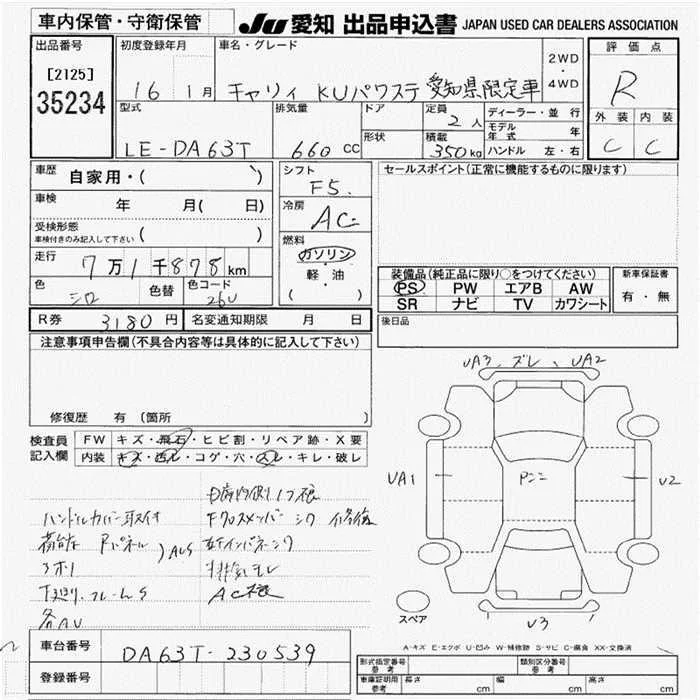 車内保管・守衛保管
JU 愛知 出品申込書 JAPAN USED CAR DEALERS ASSOCIATION
出品番号
[2125]
35234
初度登録年月
16 1月
車名・グレード
キャリィ KUパワステ 愛知県限定車
2WD
・
4WD
評価点
R
外装 内装
C C
型式
LE-DA63T
排気量
660cc
ドア
形状
定員
2人
積載
350kg
ディーラー・並行
モデル年式 年
ハンドル 左・右
車歴
自家用・( )
車検
年 月( 日)
受検形態
車検付きのみ記入して下さい ( )
走行
7万1千878km
色
シロ
色替
色コード
26U
シフト
F5.
冷房
AC
燃料
ガソリン
・
軽・油
( )
セールスポイント(正常に機能するものに限ります)
装備品(純正品に限り○をつけてください)
PS PW エアB AW
SR ナビ TV カワシート
新車保証書
有・無
R券 3180円
名変通知期限 月 日
後日品
注意事項申告欄(不具合内容等は具体的に記入して下さい)
修復歴 有(箇所
検査員
記入欄
FW キズ・飛石・ヒビ割・リペア跡・X要
内装 キズ・凹レ・コゲ・穴・スレ・キレ・破レ
ハンドルカバー取付
荷台 Rパネル
AUS
下廻り、フレームS
各AU
Fクロスメンバー シワ 修復
インパネ シワ
排気モレ
UA3、ズレ、UA2
UA1
U2
U3
スペア
A-キズ E-エクボ U-凹ミ W-補修跡 S-サビ C-腐食 XX-交換済
車台番号
DA63T-230539
登録番号
形式指定番号
参考
類別区分番号
参考
車庫証明用
参考
長さ cm 幅 cm 高さ cm